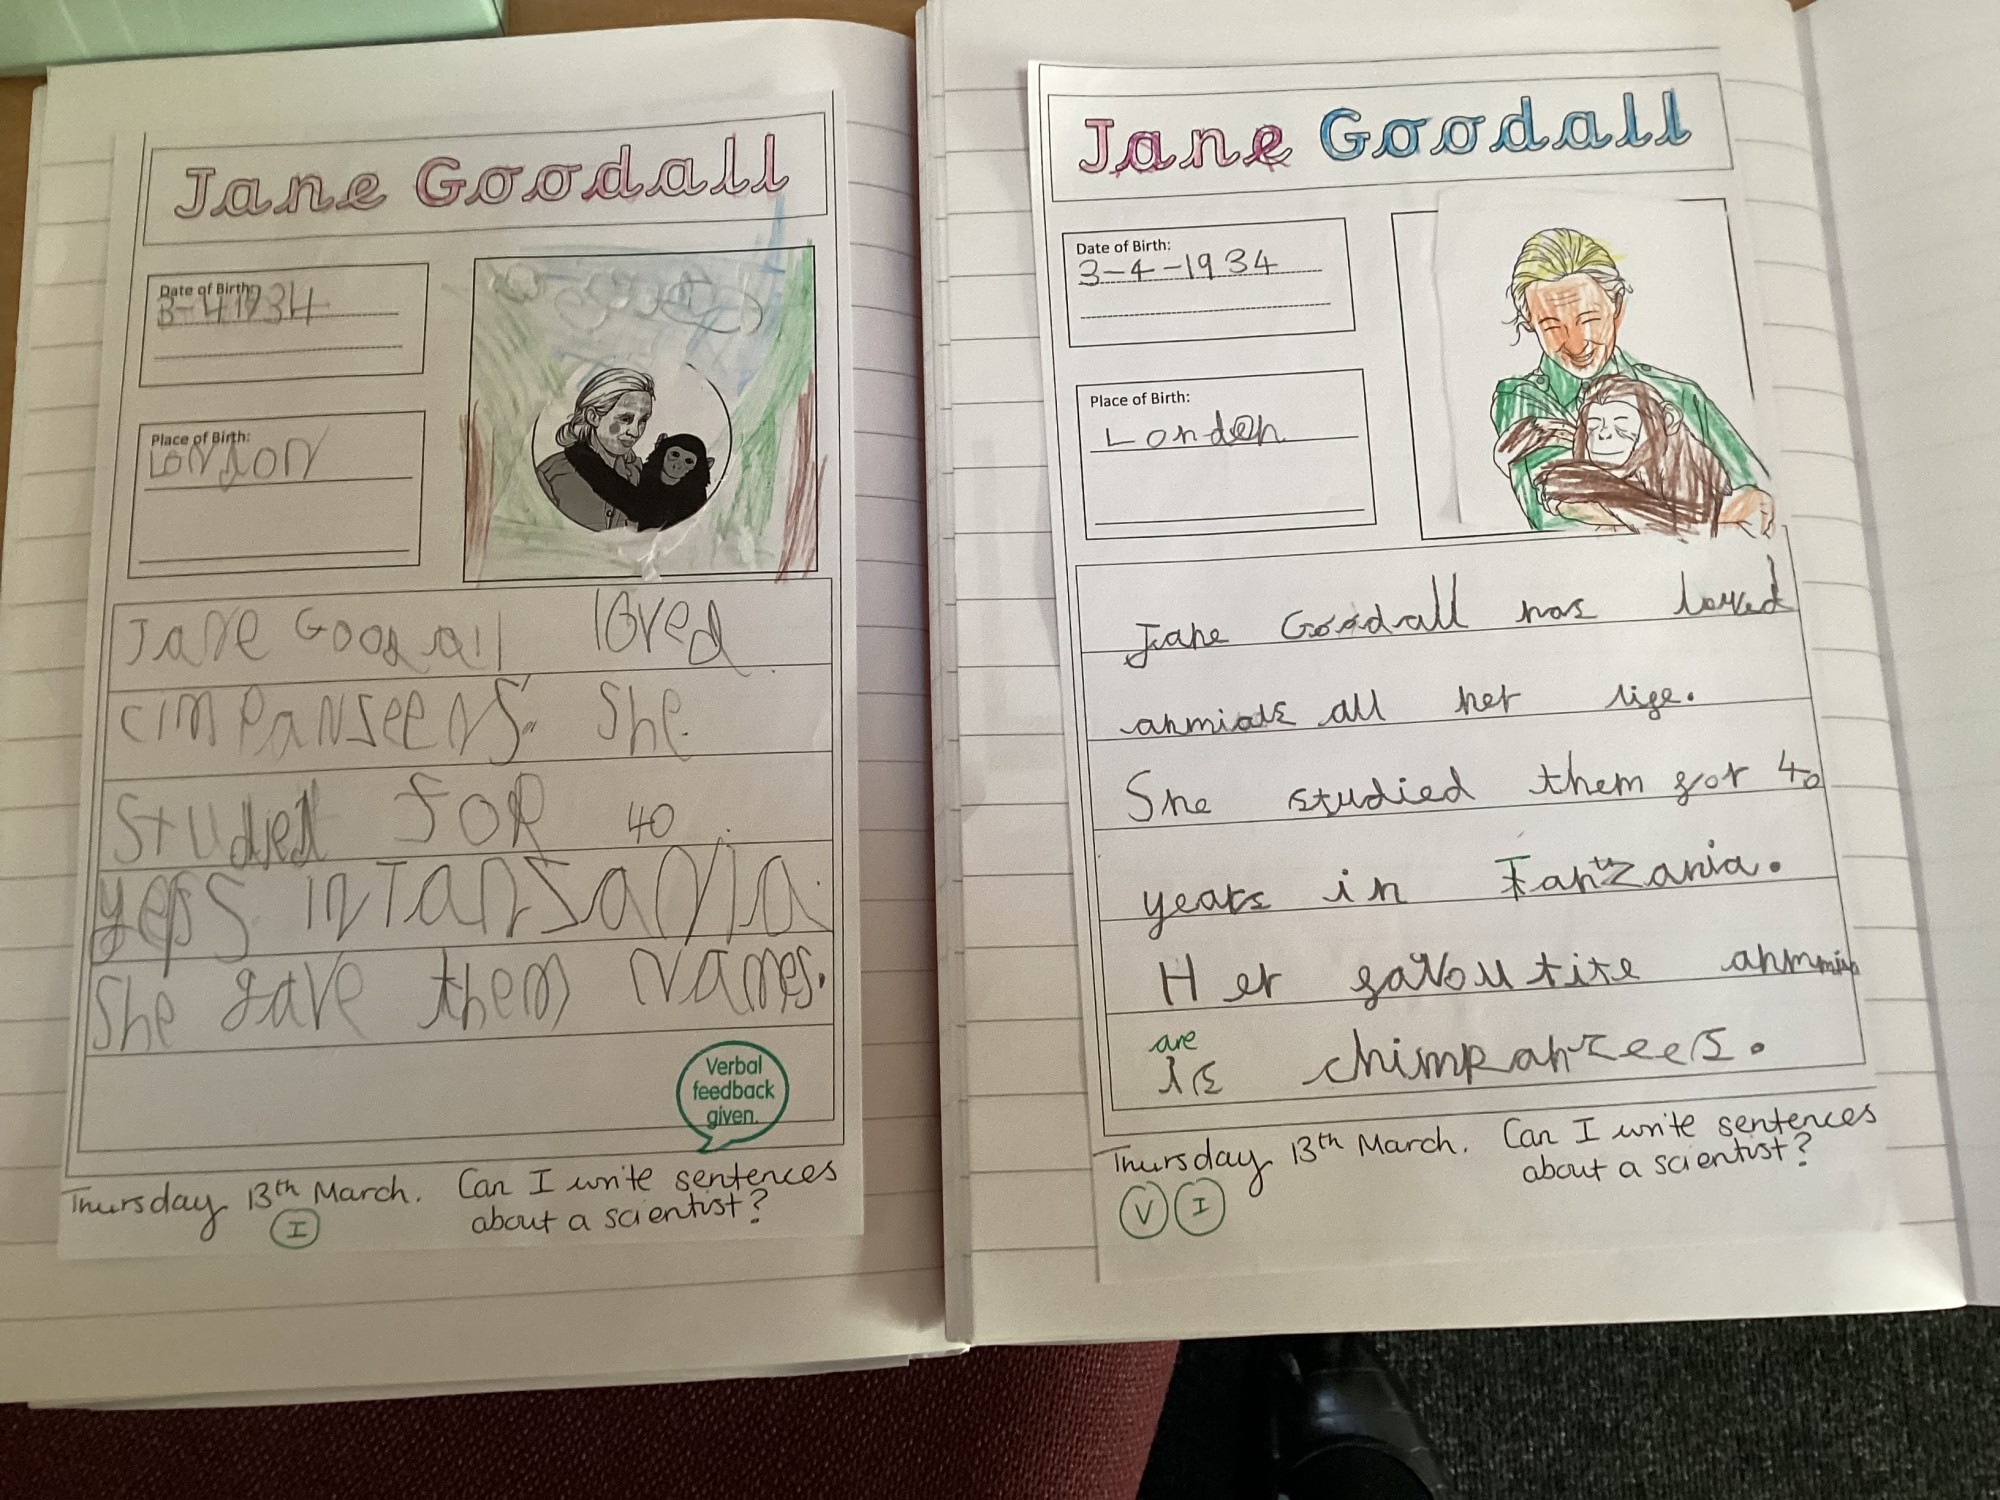 Jane Goodall
Date of Birth:
3-41934
Place of Birth:
London
Jane Goodall loved
cimpanseers. She
studied for 40
yeps in Tansania.
She gave them names.
Verbal
feedback
given.
Thursday 13th March. Can I write sentences
about a scientist?
I
Jane Goodall
Date of Birth:
3-4-1934
Place of Birth:
London
Jane Goodall has loved
anmials all her life.
She studied them for 40
years in Tanzania.
Her favoutite
are
is chimpanzees.
Thursday 13th March. Can I write sentences
about a scientist?
V I